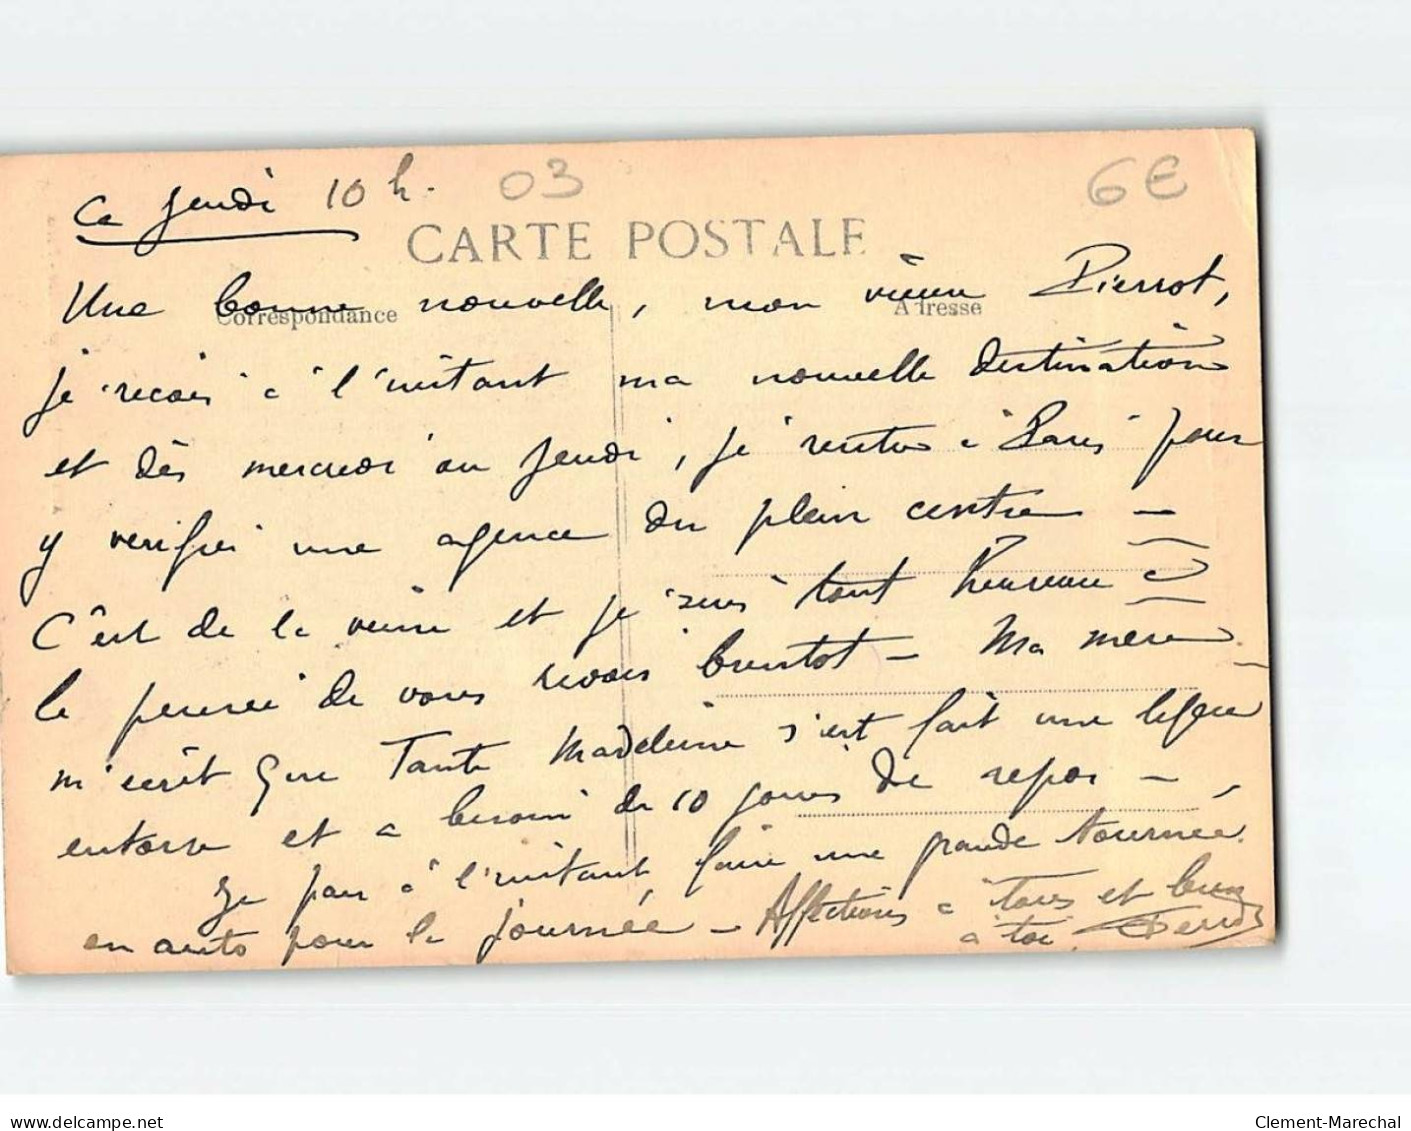 Ce Jeudi 10 h. 03 6E
CARTE POSTALE
Correspondance Adresse
Une bonne nouvelle, mon vieux Pierrot,
je reçois à l'instant ma nouvelle destination
et dès mercredi ou jeudi, je rentre à Paris pour
y vérifier une agence du plein centre —
C'est de la veine et je suis tout heureux à
la pensée de vous revoir bientôt — Ma mère
m'écrit que Tante Madeleine s'est fait une légère
entorse et a besoin de 10 jours de repos —
Je pars à l'instant faire une grande tournée
en auto pour la journée — Affections à tous et bien
à toi,
www.delcampe.net
Clement-Marechal